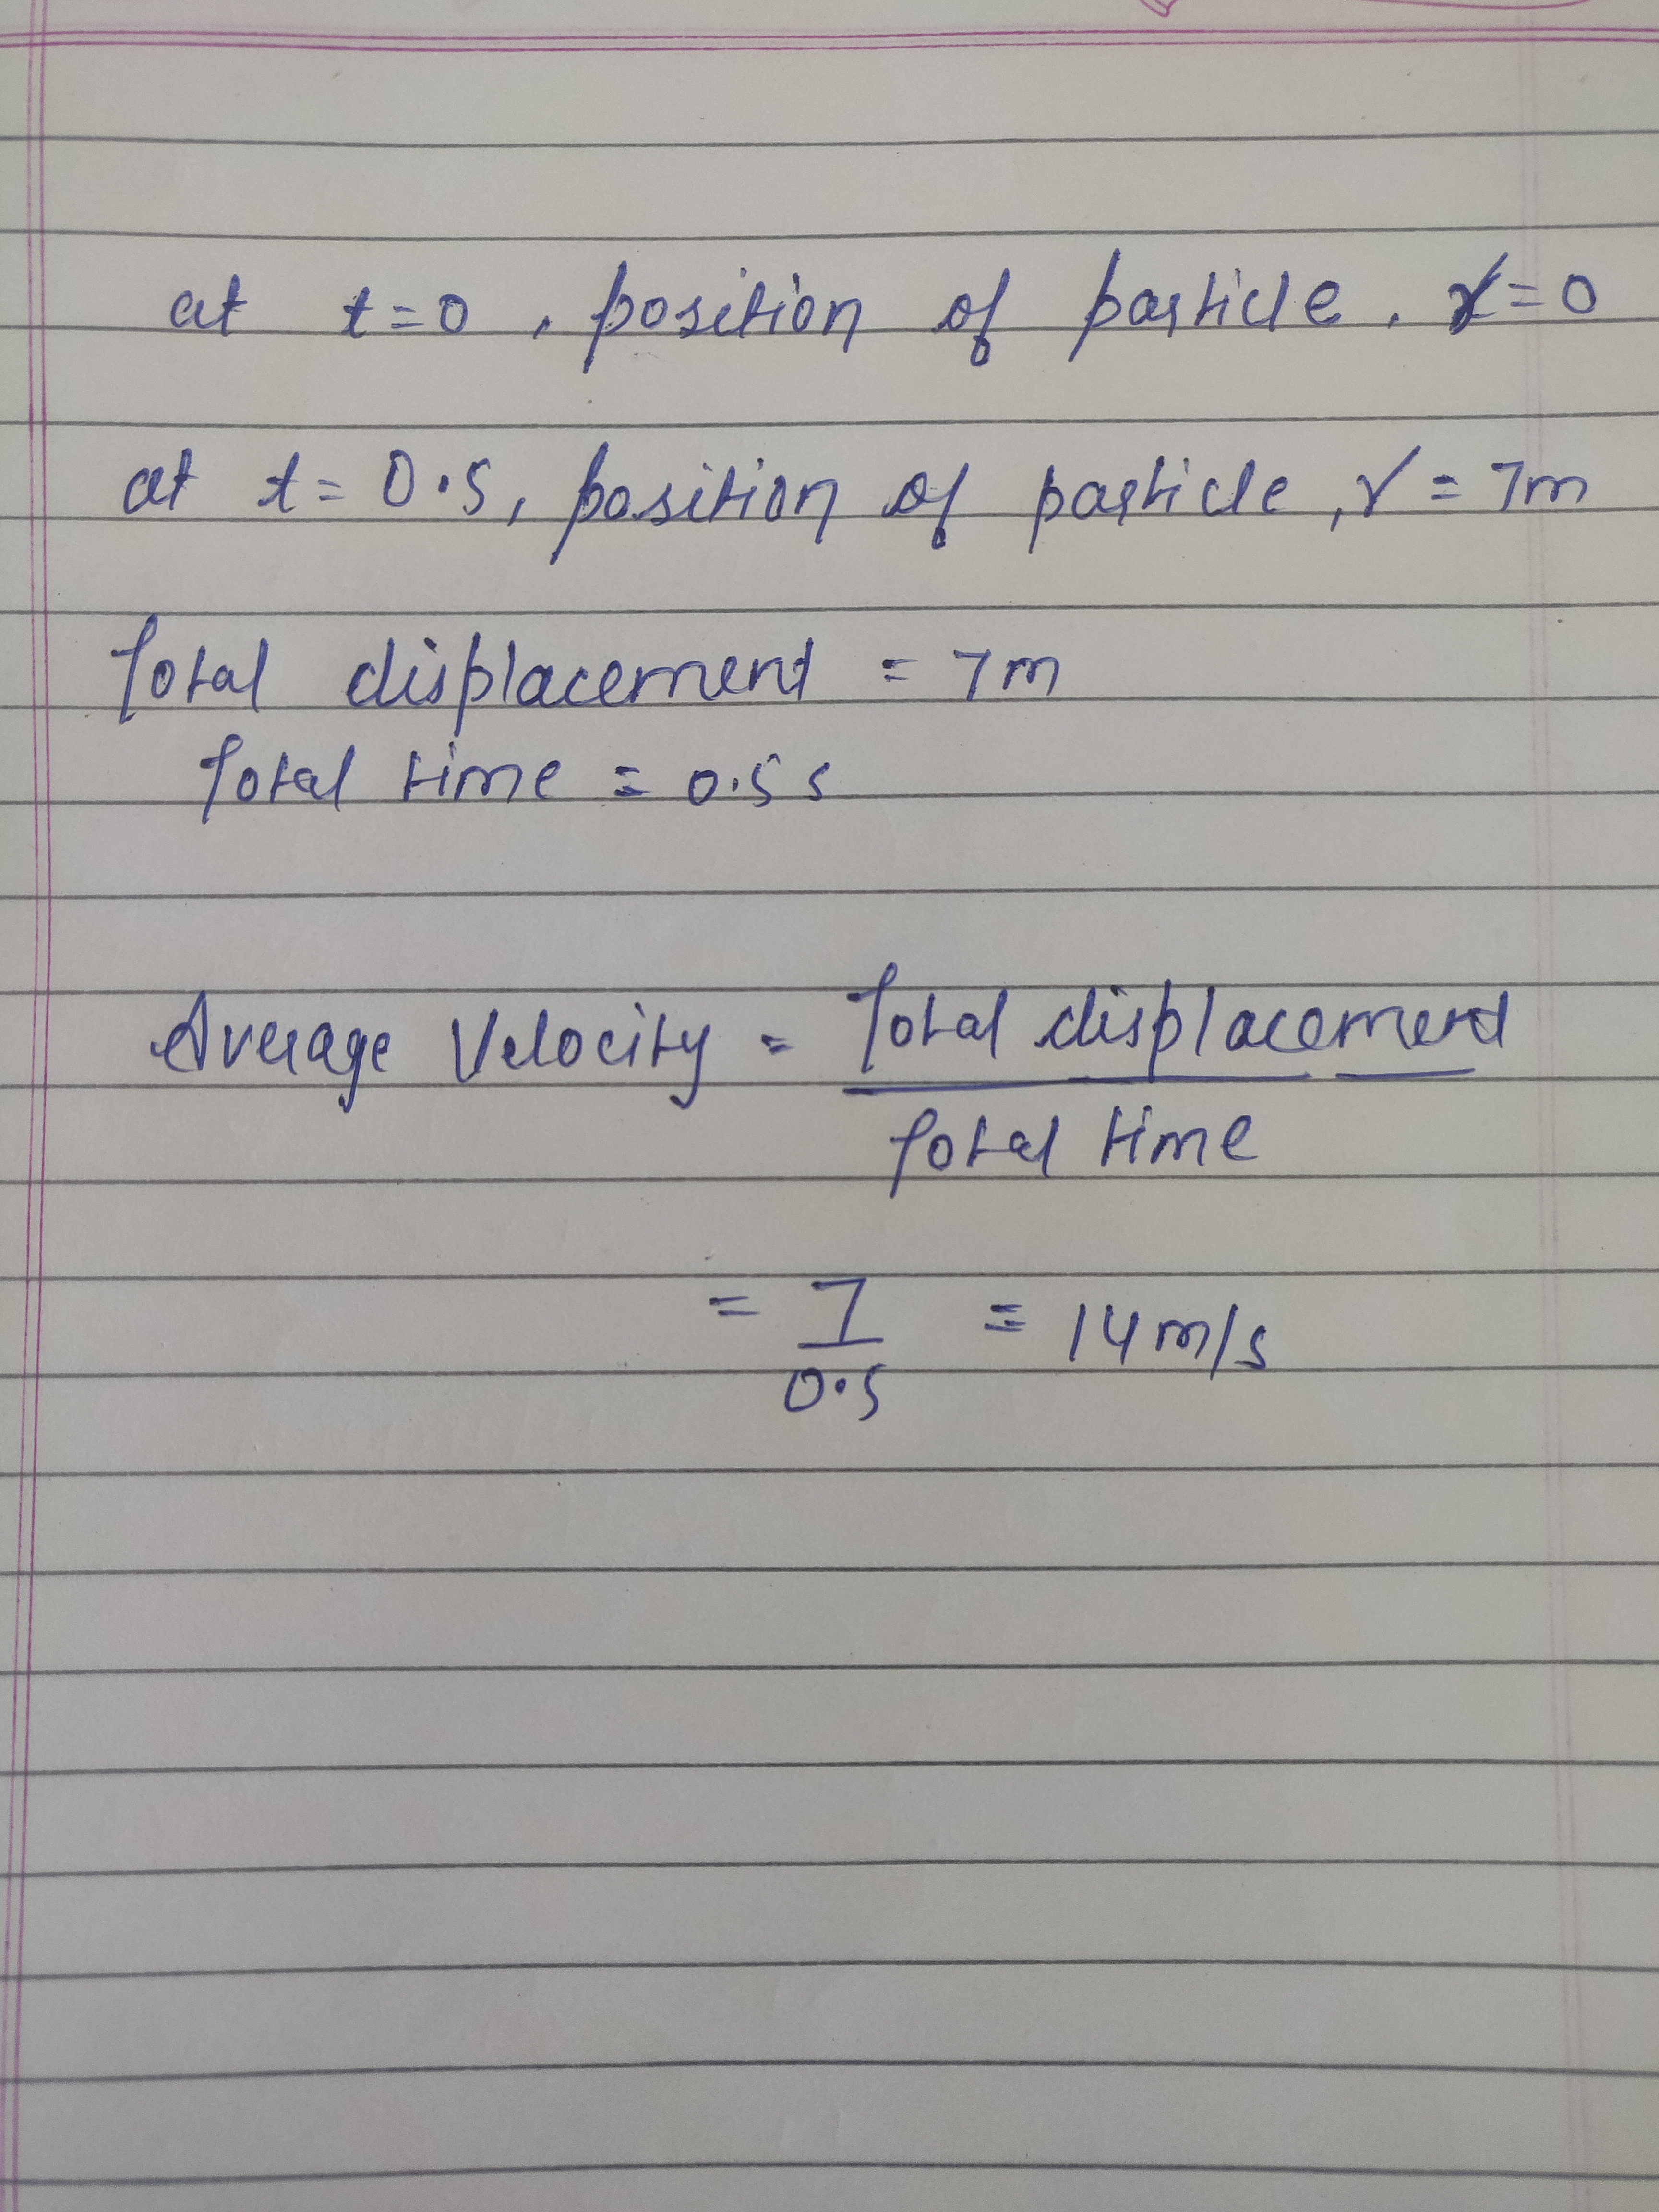 at t=0, position of particle, r=0
at t= 0.5, position of particle, r = 7m
Total displacement = 7m
Total time = 0.5 s
Average Velocity = Total displacement
Total time
= 7 = 14 m/s
0.5